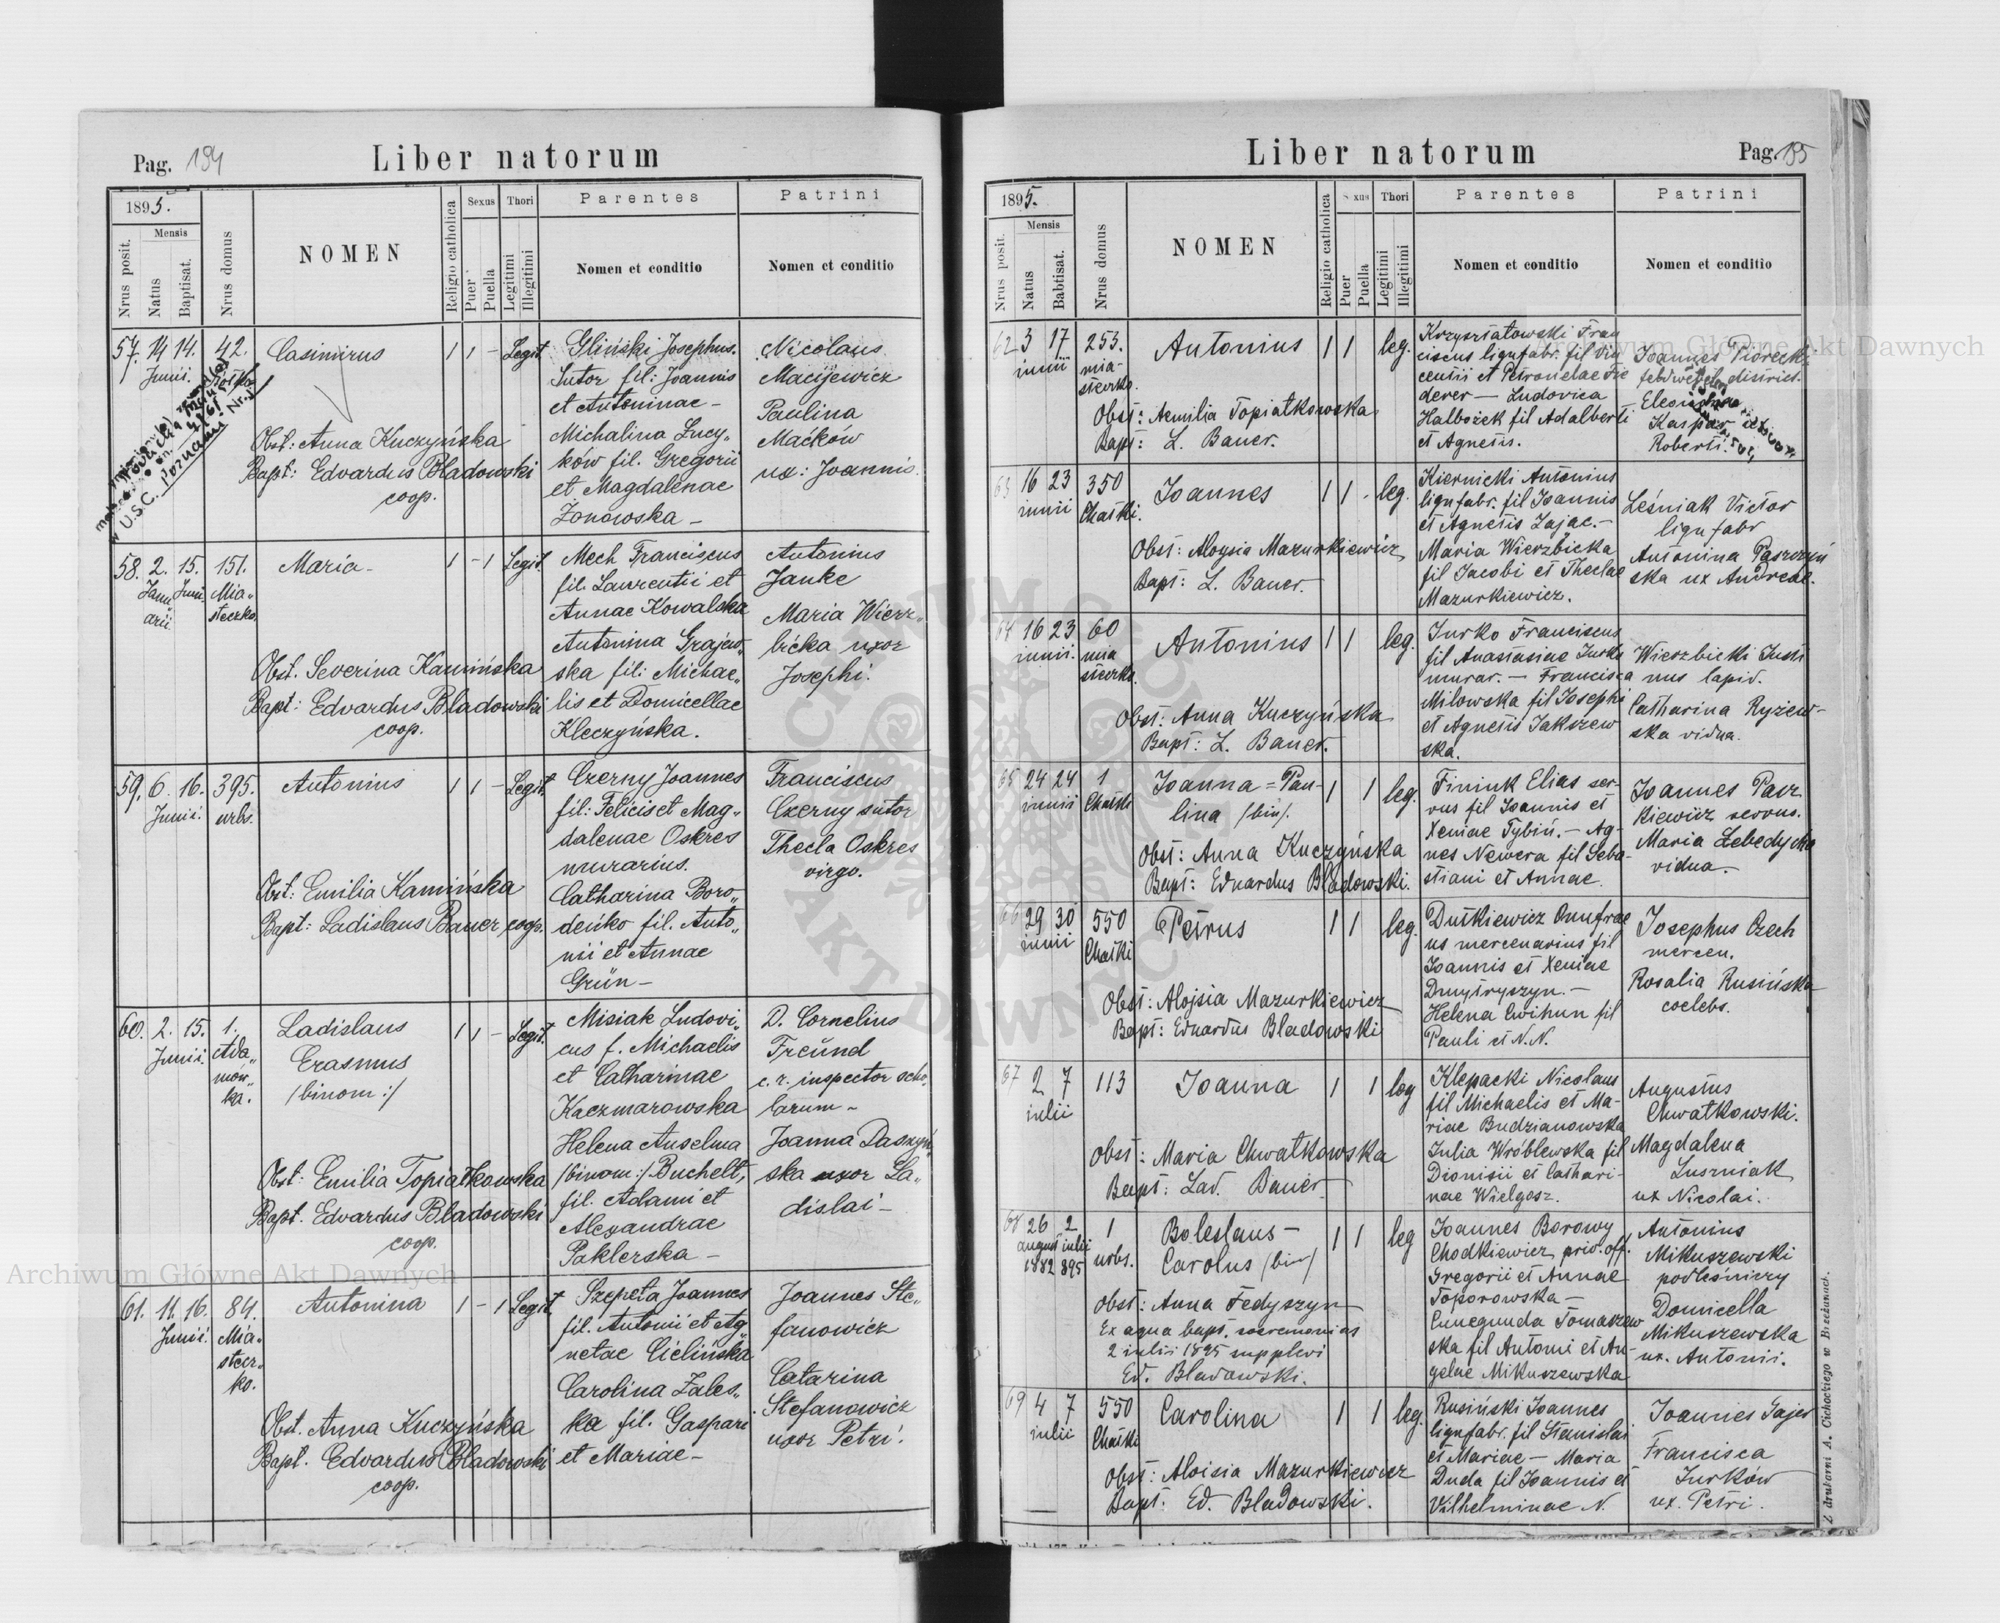 Pag. 194
Liber natorum
1895.
Nrus posit.
Mensis
Natus
Baptisat.
Nrus domus
NOMEN
Religio catholica
Sexus
Puer
Puella
Thori
Legitimi
Illegitimi
Parentes
Nomen et conditio
Patrini
Nomen et conditio
57. 14 14. 42. Casimirus 1 1 - Legit.
Junii.
Obst: Anna Kuczyńska
Bapt: Edvardus Bladowski
coop.
Gliński Josephus.
Sutor fil: Joannis
et Antoninae -
Michalina Lucy„
ków fil. Gregorii
et Magdalenae
Zonowska -
Nicolaus
Macijewicz
Paulina
Maćków
ux: Joannis.
U.S.C. Poznań
58. 2. 15. 151. Maria - 1 - 1 Legit.
Janu„ Junii Mia„
arii steczko.
Obst. Severina Kamińska
Bapt: Edvardus Bladowski
coop.
Mech Franciscus
fil. Laurentii et
Annae Kowalska
Antonina Grajew„
ska fil: Michae„
lis et Domicellae
Kleczyńska.
Antonius
Janke
Maria Wierz„
bicka uxor
Josephi.
59. 6. 16. 395. Antonius 1 1 - Legit.
Junii. urbs.
Obst: Emilia Kamińska
Bapt: Ladislaus Bauer coop.
Czerny Joannes
fil: Felicis et Mag„
dalenae Oskres
murarius.
Catharina Boro„
deńko fil. Anto„
nii et Annae
Grün -
Franciscus
Czerny sutor
Thecla Oskres
virgo.
60. 2. 15. 1. Ladislaus 1 1 - Legit.
Junii. Ada„ Erasmus
mów„ /binom:/
ka.
Obst: Emilia Topiatkowska
Bapt. Edvardus Bladowski
coop.
Misiak Ludovi„
cus f. Michaelis
et Catharinae
Kaczmarowska
Helena Anselma
/binom:/ Buchelt,
fil. Adami et
Alexandrae
Paklerska -
D. Cornelius
Freünd
c. r. inspector scho„
larum -
Joanna Daszyń„
ska uxor La„
dislai -
61. 11. 16. 84. Antonina 1 - 1 Legit.
Junii. Mia„
stecz„
ko.
Obst. Anna Kuczyńska
Bapt. Edvardus Bladowski
coop.
Szepeta Joannes
fil. Antonii et Ag„
netae Cielińska
Carolina Zales„
ka fil. Gaspari
et Mariae -
Joannes Ste„
fanowicz
Catarina
Stefanowicz
uxor Petri.
Liber natorum
Pag. 195
1895.
Nrus posit.
Mensis
Natus
Babtisat.
Nrus domus
NOMEN
Religio catholica
Sexus
Puer
Puella
Thori
Legitimi
Illegitimi
Parentes
Nomen et conditio
Patrini
Nomen et conditio
62 3 17 253. Antonius 1 1 leg.
iunii mia-
steczko.
Obst: Aemilia Topiatkowska
Bapt: L. Bauer.
Krzyształowski Fran
ciscus lignfabr. fil Vin
centii et Petronelae Fie
derer - Ludovica
Halbożek fil Adalberti
et Agnetis.
Joannes Piorecki
Kasper
Roberti.
63 16 23 350 Joannes 1 1 - leg.
iunii Chatki.
Obst: Aloysia Mazurkiewicz
Bapt: L. Bauer.
Kiernicki Antonius
lignfabr. fil Joannis
et Agnetis Zając. -
Maria Wierzbicka
fil Jacobi et Theclae
Mazurkiewicz.
Leśniak Victor
lignfabr
Antonina Paszczyń
ska ux Andreae.
64 16 23 60 Antonius 1 1 leg.
iunii. mia
steczko.
Obst: Anna Kuczyńska
Bapt: L. Bauer.
Jurko Franciscus
fil Anastasiae Jurko
murar. - Francisca
Milowska fil Josephi
et Agnetis Jakszew
ska.
Wierzbicki Justi
nus lapid.
Catharina Ryżew-
ska vidua.
65 24 24 1 Joanna = Pau- 1 1 leg.
iunii Chatki lina /bin/.
Obst: Anna Kuczyńska
Bapt: Eduardus Bladowski.
Finink Elias ser-
vus fil Joannis et
Xeniae Tybiń. - Ag-
nes Newera fil Seba-
stiani et Annae.
Joannes Pasz
kiewicz servus.
Maria Lebedycka
vidua. -
66 29 30 550 Petrus 1 1 leg.
iunii Chatki
Obst: Alojsia Mazurkiewicz
Bapt: Eduardus Bladowski
Dutkiewicz Onufrae
us mercenarius fil
Joannis et Xeniae
Dmytryszyn. -
Helena Cwihun fil
Pauli et N.N.
Josephus Czech
mercen.
Rosalia Rusińska
coelebs.
67 2 7 113 Joanna 1 1 leg
iulii
Obst: Maria Chwatkowska
Bapt: Lad. Bauer
Klepacki Nicolaus
fil Michaelis et Ma-
riae Budzianowska
Julia Wróblewska fil
Dionisii et Cathari-
nae Wielgosz.
Augustus
Chwatkowski.
Magdalena
Luszniak
ux Nicolai.
68 26 2 1 Boleslaus - 1 1 leg
august iulii urbs. Carolus /bin/
1882 895
Obst: Anna Fedyszyn
Ex aqua bapt. ceremonias
2 iulii 1895 supplevi
Ed. Bladowski.
Joannes Borowy
Chodkiewicz priv. off.
Gregorii et Annae
Toporowska -
Cunegunda Tomaszew
ska fil Antoni et An-
gelae Mikuszewska
Antonius
Mikuszewski
podleśniczy
Domicella
Mikuszewska
ux. Antonii.
69 4 7 550 Carolina 1 1 leg.
iulii Chatki
Obst: Aloisia Mazurkiewicz
Bapt: Ed. Bladowski.
Rusiński Joannes
lignfabr. fil Stanislai
et Mariae - Maria
Duda fil Joannis et
Vilhelminae N.
Joannes Pajer
Francisca
Jurków
ux. Petri.
Z drukarni A. Cichockiego w Brzeżanach.
Archiwum Główne Akt Dawnych
Archiwum Główne Akt Dawnych